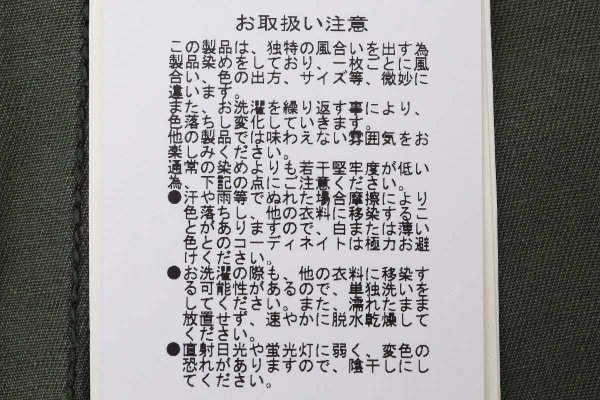 お取扱い注意
この製品は、独特の風合いを出す為
製品染めをしており、一枚ごとに風
合い、色の出方、サイズ等、微妙に
違います。
また、お洗濯を繰り返す事により、
色落ちし変化していきます。
他の製品では味わえない雰囲気をお
楽しみください。
通常の染めよりも若干堅牢度が低い
為、下記の点にご注意ください。
●汗や雨等でぬれた場合摩擦により
色落ちし、他の衣料に移染するこ
とがありますので、白または薄い
色とのコーディネイトは極力お避
けください。
●お洗濯の際も、他の衣料に移染す
る可能性があるので、単独洗いを
してください。また、濡れたまま
放置せず、速やかに脱水乾燥して
ください。
●直射日光や蛍光灯に弱く、変色の
恐れがありますので、陰干しにし
てください。